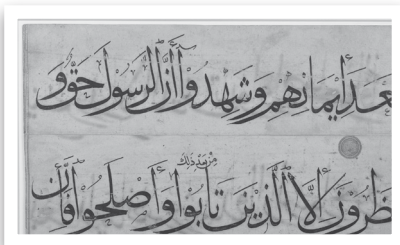 بَعدَ إِيمَانِهِمْ وَشَهِدُوا أَنَّ الرَّسُولَ حَقٌّ وَ
مِنْ بَعْدِ ذَلِكَ
يُنظَرُونَ إِلَّا الَّذِينَ تَابُوا وَأَصْلَحُوا فَإِنَّ